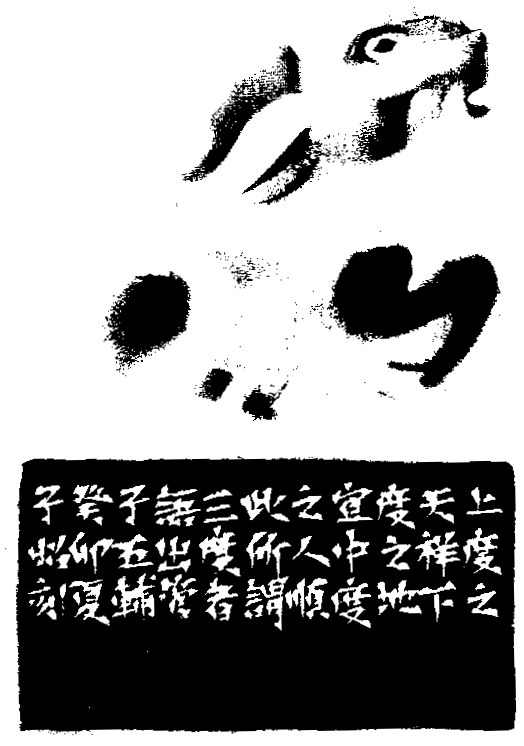 上度之
天祥下
度之地
宜中度
之人順
此所謂
三度者
語出管
子五輔
癸卯夏
子刻